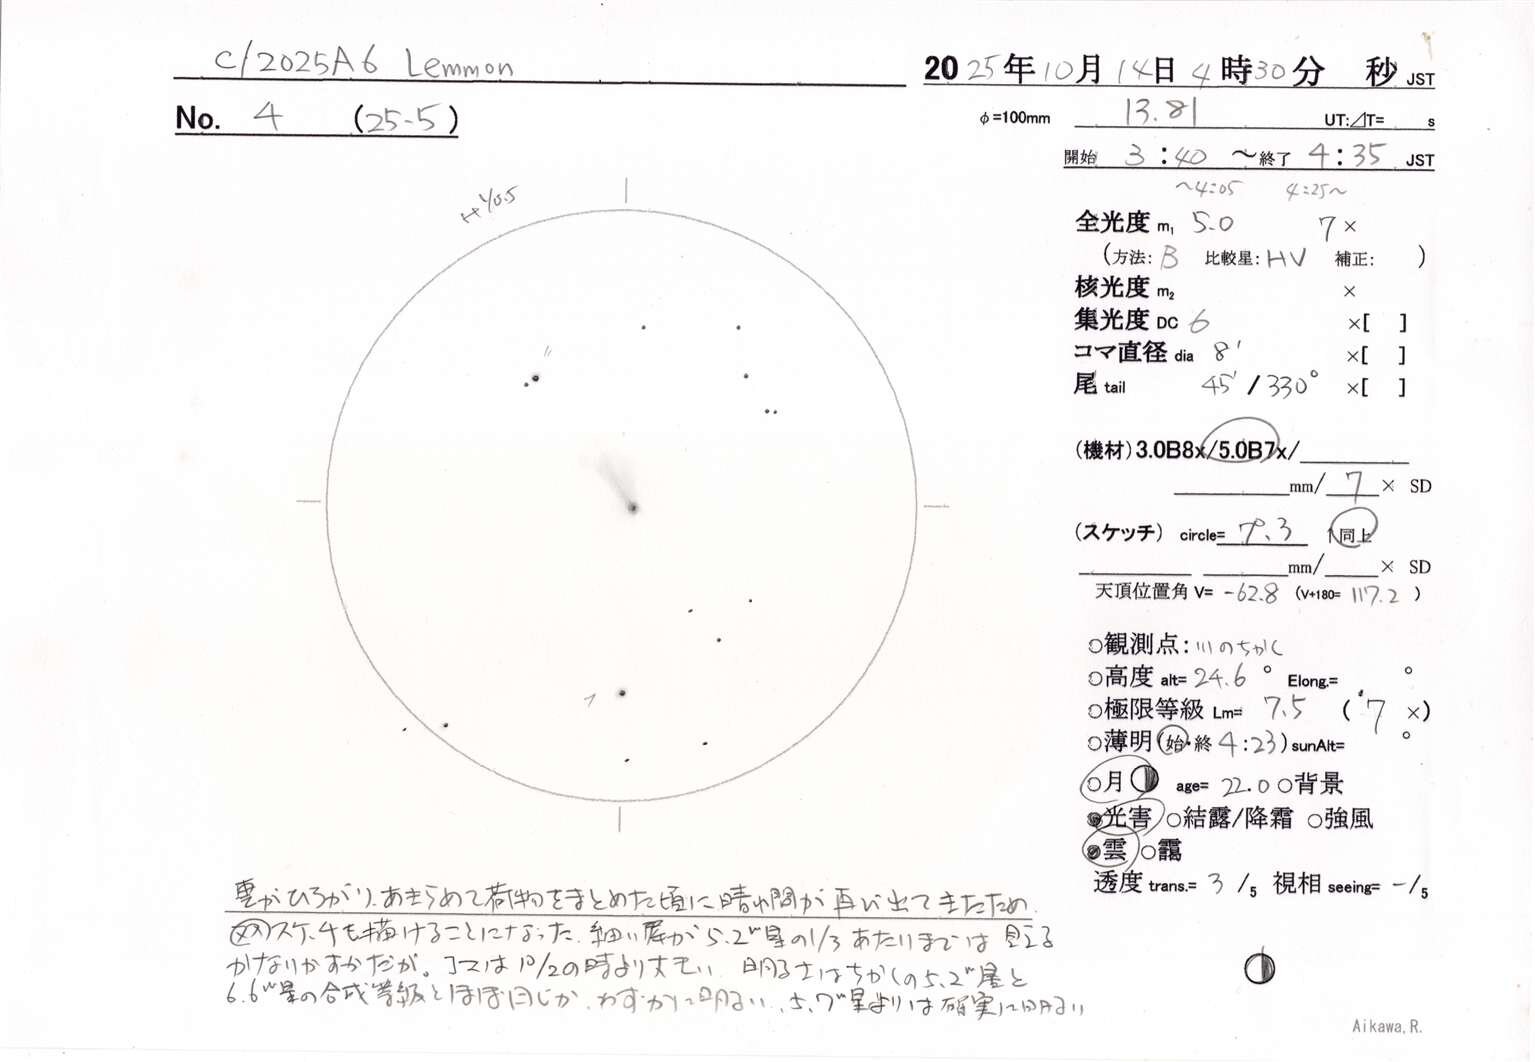 C/2025A6 Lemmon
2025年10月14日4時30分 秒 JST
No. 4 (25-5)
φ=100mm 13.81 UT:⊿T= s
開始 3:40 ~終了 4:35 JST
~4:05 4:25~
全光度 m₁ 5.0 7×
(方法: B 比較星: HV 補正: )
核光度 m₂ ×
集光度 DC 6 ×[ ]
コマ直径 dia 8' ×[ ]
尾 tail 45' / 330° ×[ ]
(機材) 3.0B8x/5.0B7x/
mm/ 7 × SD
(スケッチ) circle= 7°.3 ↑同上
mm/ × SD
天頂位置角 V= -62.8 (V+180= 117.2 )
○観測点: 川のちかく
○高度 alt= 24.6 ° Elong.= °
○極限等級 Lm= 7.5 ( 7 ×)
○薄明(始・終 4:23) sunAlt= °
○月 age= 22.0 ○背景
○光害 ○結露/降霜 ○強風
○雲 ○靄
透度 trans.= 3 /5 視相 seeing= - /5
雲がひろがり、あきらめて荷物をまとめた頃に晴れ間が再び出てきたため、
スケッチも描けることになった。細い尾が5.2等星の1/3あたりまでは見える
かなりかすかだが。コマは10/2の時より大きい 明るさはちかくの5.2等星と
6.6等星の合成等級とほぼ同じか、わずかに明るい、5.7等星よりは確実に明るい
Aikawa,R.